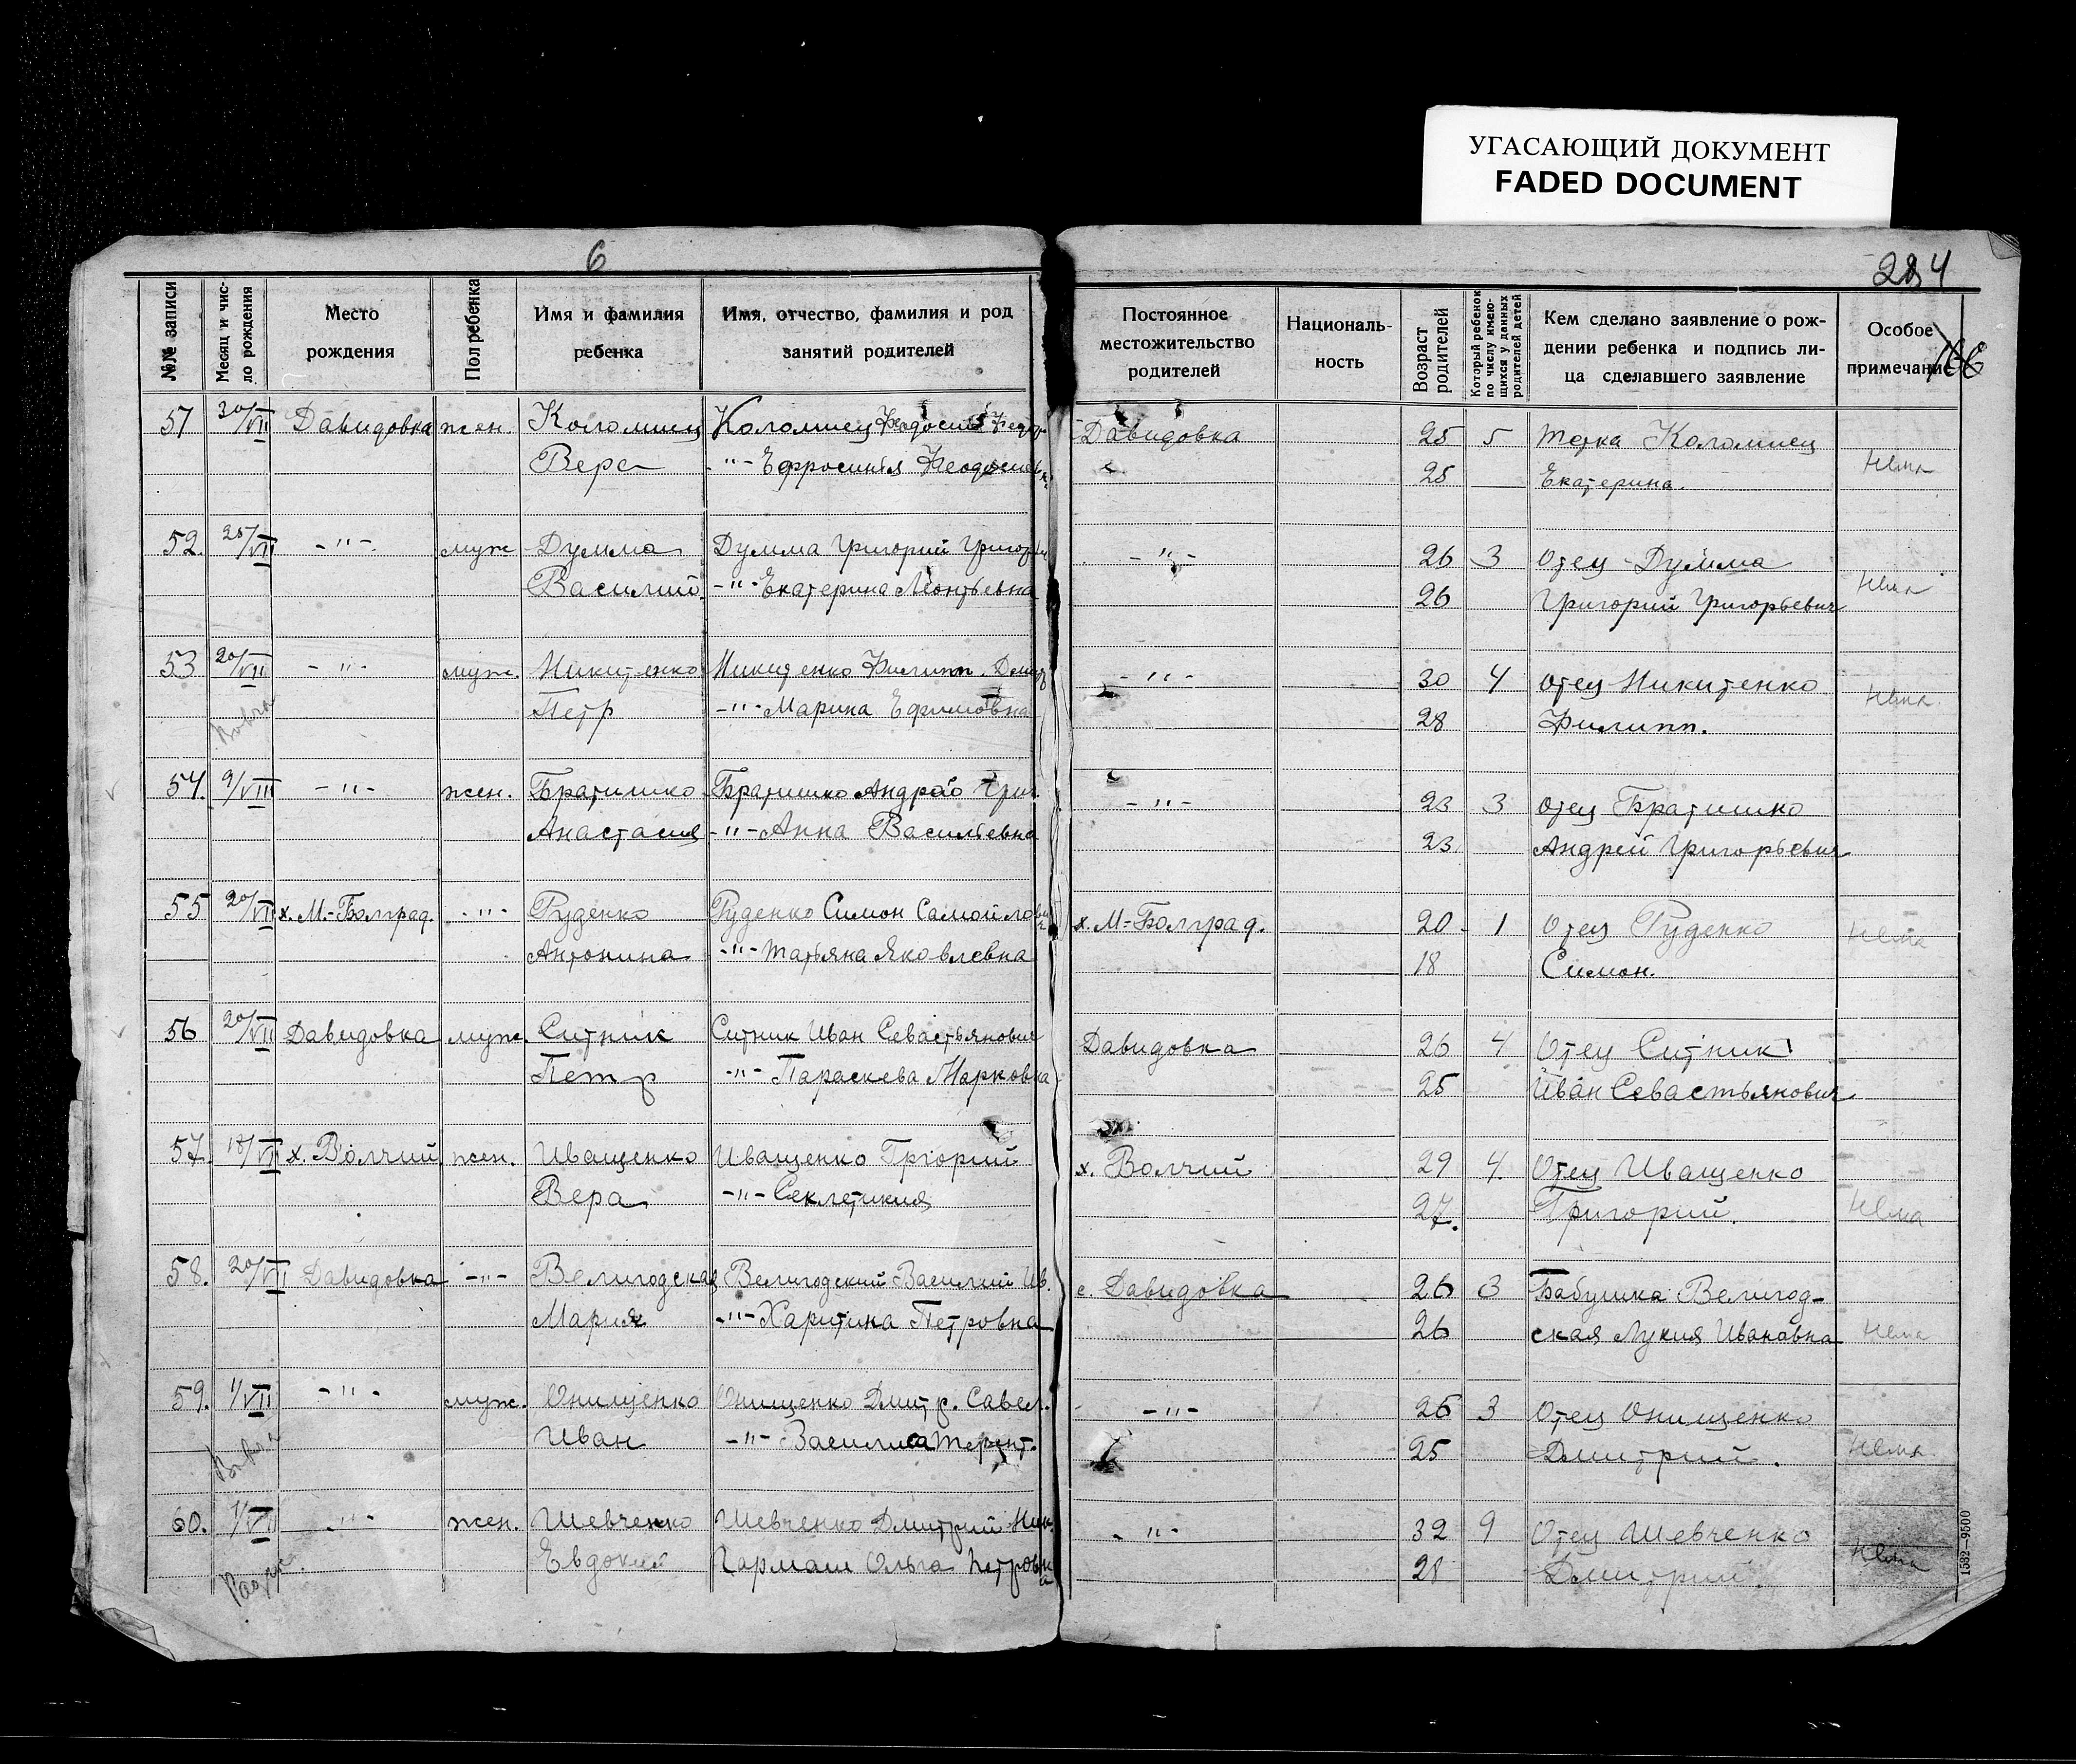 УГАСАЮЩИЙ ДОКУМЕНТ
FADED DOCUMENT
6
284
№№ записи
Месяц и чис-
ло рождения
Место
рождения
Пол ребенка
Имя и фамилия
ребенка
Имя, отчество, фамилия и род
занятий родителей
Постоянное
местожительство
родителей
Националь-
ность
Возраст
родителей
Который ребенок
по числу имею-
щихся у данных
родителей детей
Кем сделано заявление о рож-
дении ребенка и подпись ли-
ца сделавшего заявление
Особое
примечание
51 30/VII Давидовка жен. Коломиец Коломиец Феодосий Давидовка 25 5 Тетка Коломиец
Вера -"- Ефросиния 25 Екатерина. Нема
52. 25/VII -"- муж Думма Думма Григорий Григор -"- 26 3 Отец Думма
Василий. -"- Екатерина Леонтьевна 26 Григорий Григорьевич Нема
53 20/VII -"- муж. Никитенко Никитенко Филипп. Дмит -"- 30 4 Отец Никитенко
Петр -"- Марина Ефимовна 28 Филипп. Нема
54. 9/VIII -"- жен. Братишко Братишко Андрей Григ. -"- 23 3 Отец Братишко
Анастасия -"- Анна Васильевна 23 Андрей Григорьевич
55 20/VII х. М.-Болград. -"- Руденко Руденко Симон Самойлович х. М-Болград. 20 1 Отец Руденко
Антонина -"- Татьяна Яковлевна 18 Симон. Нема
56 20/VII Давидовка муж. Ситник Ситник Иван Севастьянович Давидовка 26 4 Отец Ситник
Петр -"- Параскева Марковна 25 Иван Севастьянович
57. х. Волчий жен. Иващенко Иващенко Грiорий х. Волчий 29 4. Отец Иващенко
Вера -"- Секлетикия 27. Григорий. Нема
58. 20/VII Давидовка -"- Велигодская Велигодский Василий Ив. с. Давидовка 26 3 Бабушка Велигод-
Мария -"- Харитина Петровна 26 ская Лукия Ивановна Нема
59. 1/VII -"- муж. Онищенко Онищенко Дмитр. Савел. -"- 26 3 Отец Онищенко
Иван -"- Василиса Терент. 25 Дмитрий. Нема
60. -"- жен. Шевченко Шевченко Дмитрий Ник. -"- 32 9 Отец Шевченко
Евдокия Гармаш Ольга Петровна 28 Дмитрий. Нема
1532—9500